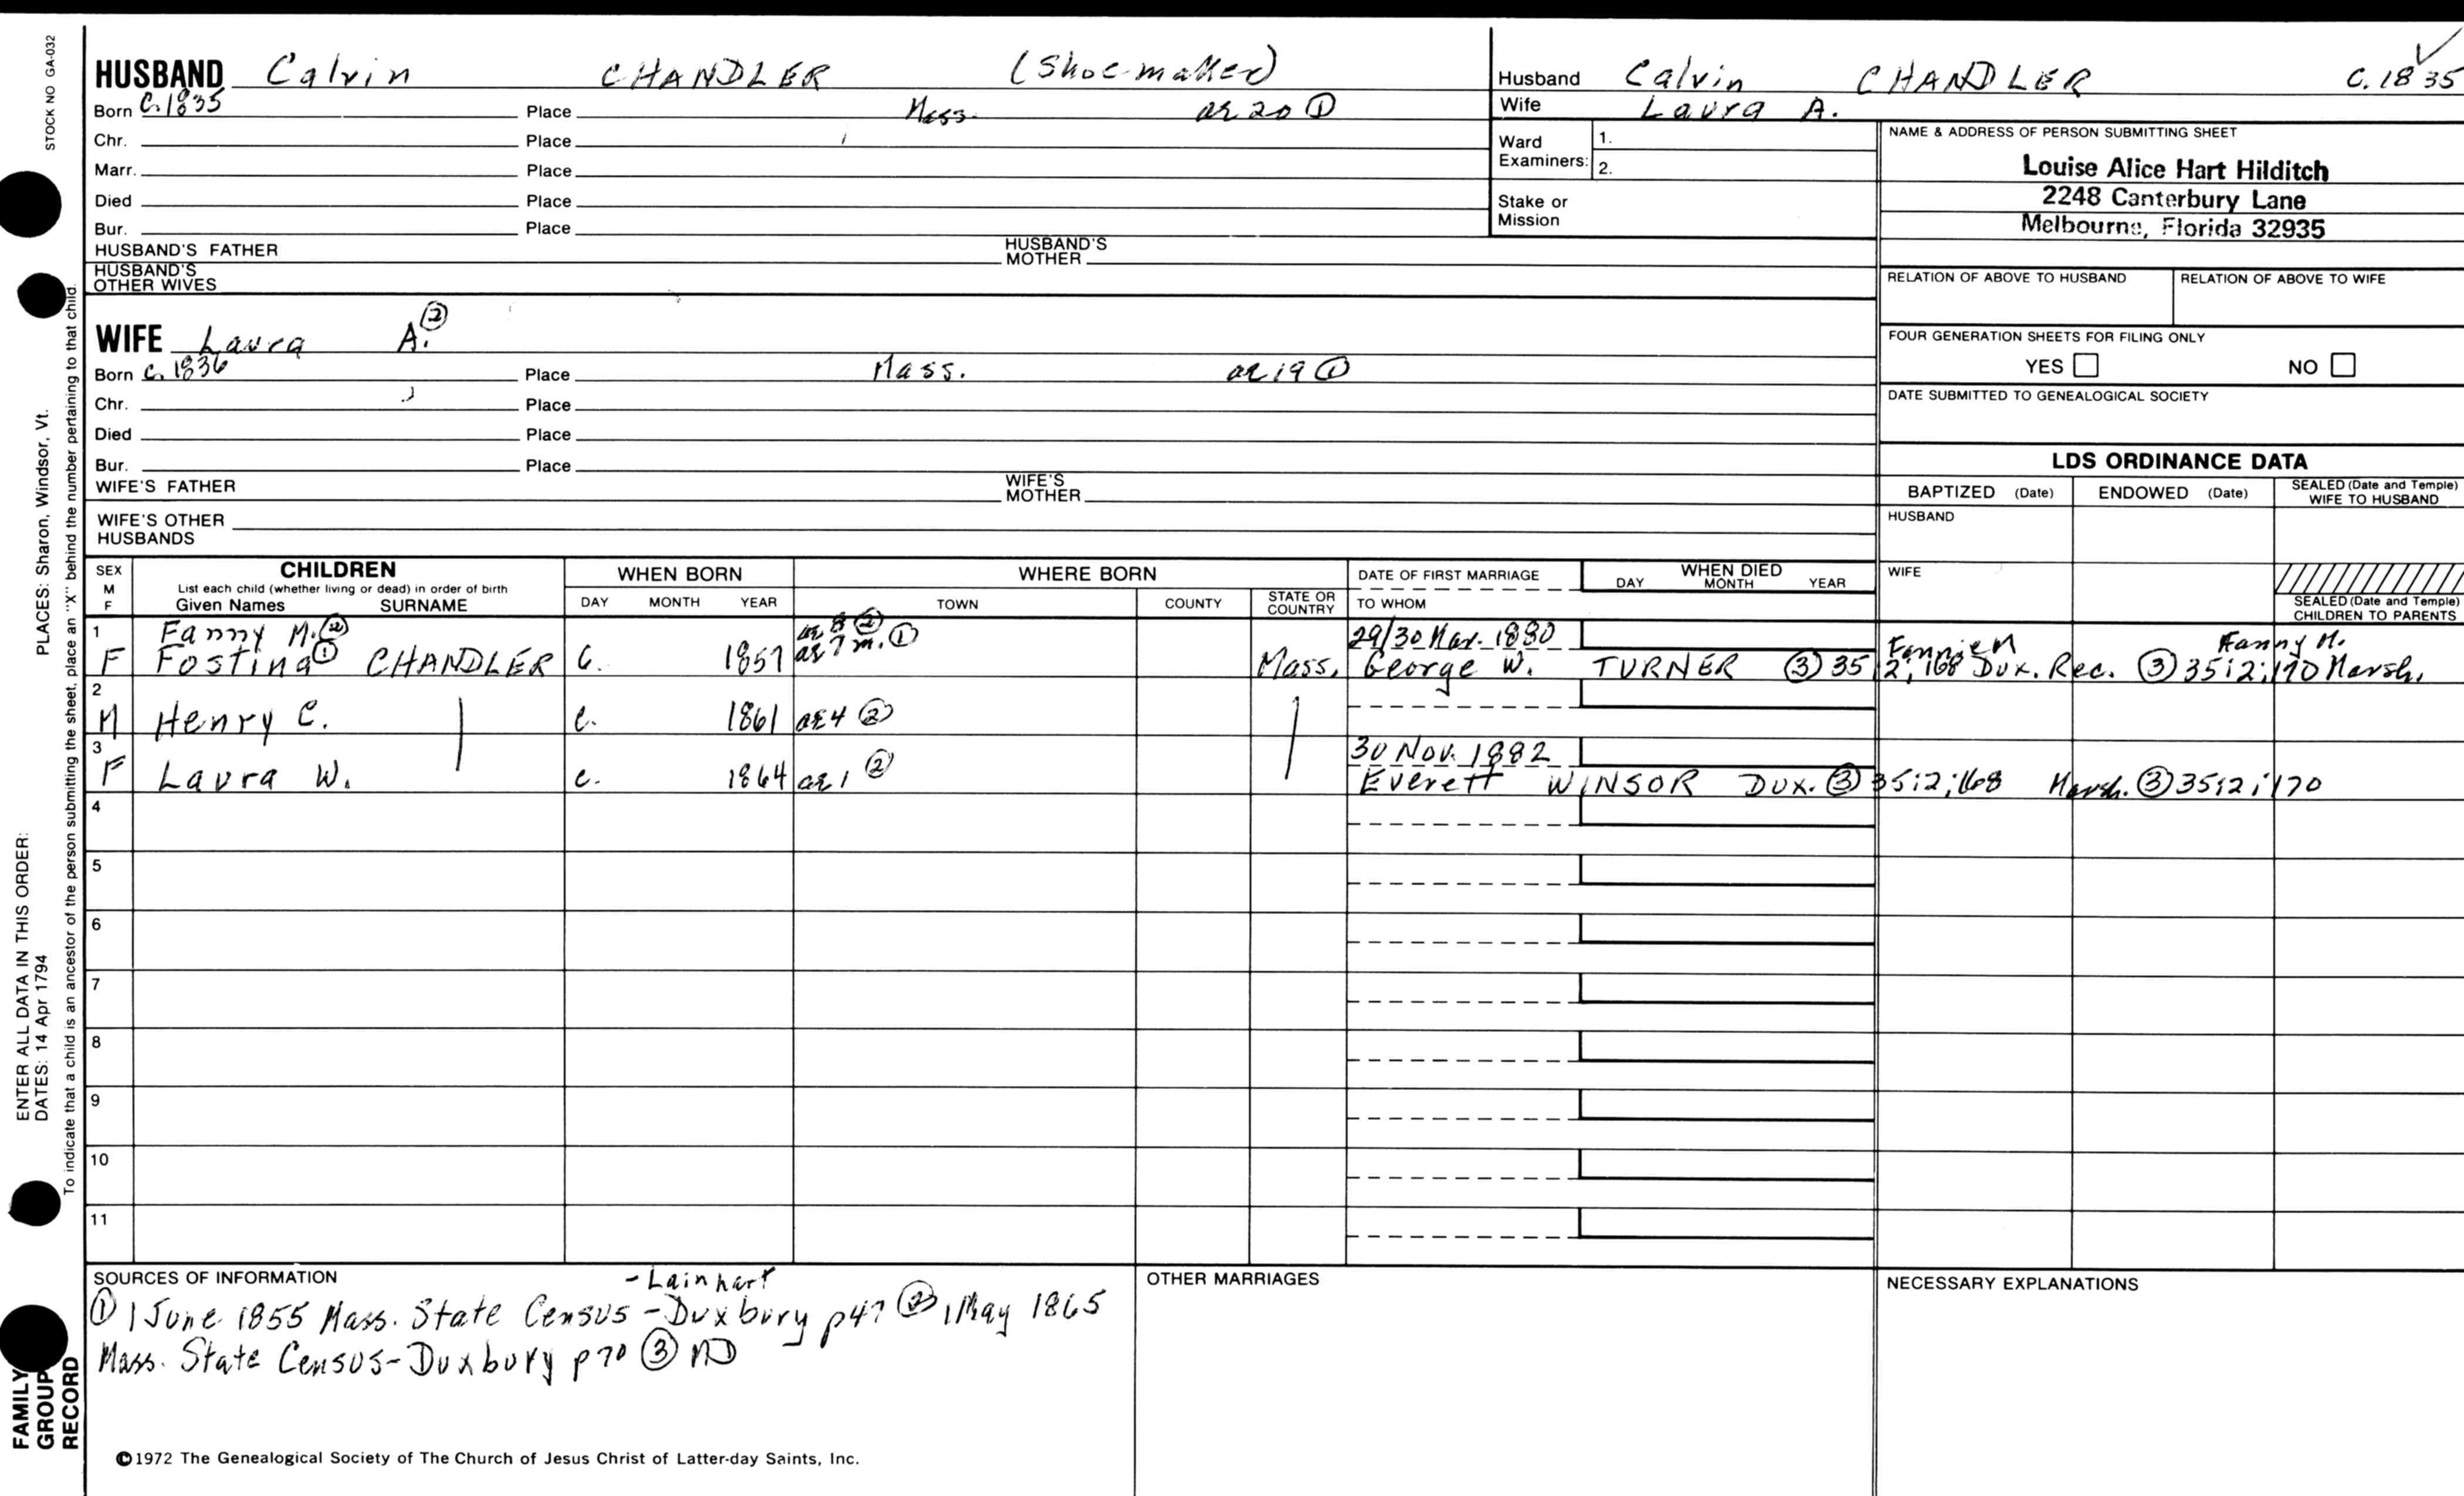 STOCK NO GA-032
PLACES: Sharon, Windsor, Vt.
ENTER ALL DATA IN THIS ORDER:
DATES: 14 Apr 1794
To indicate that a child is an ancestor of the person submitting the sheet, place an "X" behind the number pertaining to that child.
FAMILY GROUP RECORD
HUSBAND Calvin CHANDLER (Shoemaker)
Born C.1835 Place Mass. ae 20 ①
Chr. Place
Marr. Place
Died Place
Bur. Place
HUSBAND'S FATHER HUSBAND'S MOTHER
HUSBAND'S OTHER WIVES
WIFE Laura A. ②
Born c. 1836 Place Mass. ae 19 ①
Chr. Place
Died Place
Bur. Place
WIFE'S FATHER WIFE'S MOTHER
WIFE'S OTHER HUSBANDS
Husband Calvin CHANDLER C. 1835
Wife Laura A.
Ward Examiners: 1.
2.
Stake or Mission
NAME & ADDRESS OF PERSON SUBMITTING SHEET
Louise Alice Hart Hilditch
2248 Canterbury Lane
Melbourne, Florida 32935
RELATION OF ABOVE TO HUSBAND RELATION OF ABOVE TO WIFE
FOUR GENERATION SHEETS FOR FILING ONLY
YES NO
DATE SUBMITTED TO GENEALOGICAL SOCIETY
LDS ORDINANCE DATA
BAPTIZED (Date) ENDOWED (Date) SEALED (Date and Temple) WIFE TO HUSBAND
HUSBAND
WIFE
SEALED (Date and Temple) CHILDREN TO PARENTS
SEX M F CHILDREN WHEN BORN WHERE BORN DATE OF FIRST MARRIAGE WHEN DIED
List each child (whether living or dead) in order of birth
Given Names SURNAME DAY MONTH YEAR TOWN COUNTY STATE OR COUNTRY TO WHOM DAY MONTH YEAR
1 Fanny M. ② ae 8 ② 29/30 Mar. 1880 Fannie M Fanny M.
F Fostina ① CHANDLER C. 1857 ae 7 m. ① Mass. George W. TURNER ③ 35 2; 168 Dux. Rec. ③ 35:2;170 Marsh.
2
M Henry C. c. 1861 ae 4 ②
3 30 Nov. 1882
F Laura W. c. 1864 ae 1 ② Everett WINSOR Dux. ③ 35:2;168 Marsh. ③ 35:2;170
4
5
6
7
8
9
10
11
SOURCES OF INFORMATION -Lainhart
① 1 June 1855 Mass. State Census-Duxbury p47 ② 1 May 1865
Mass. State Census-Duxbury p70 ③ MD
OTHER MARRIAGES
NECESSARY EXPLANATIONS
©1972 The Genealogical Society of The Church of Jesus Christ of Latter-day Saints, Inc.